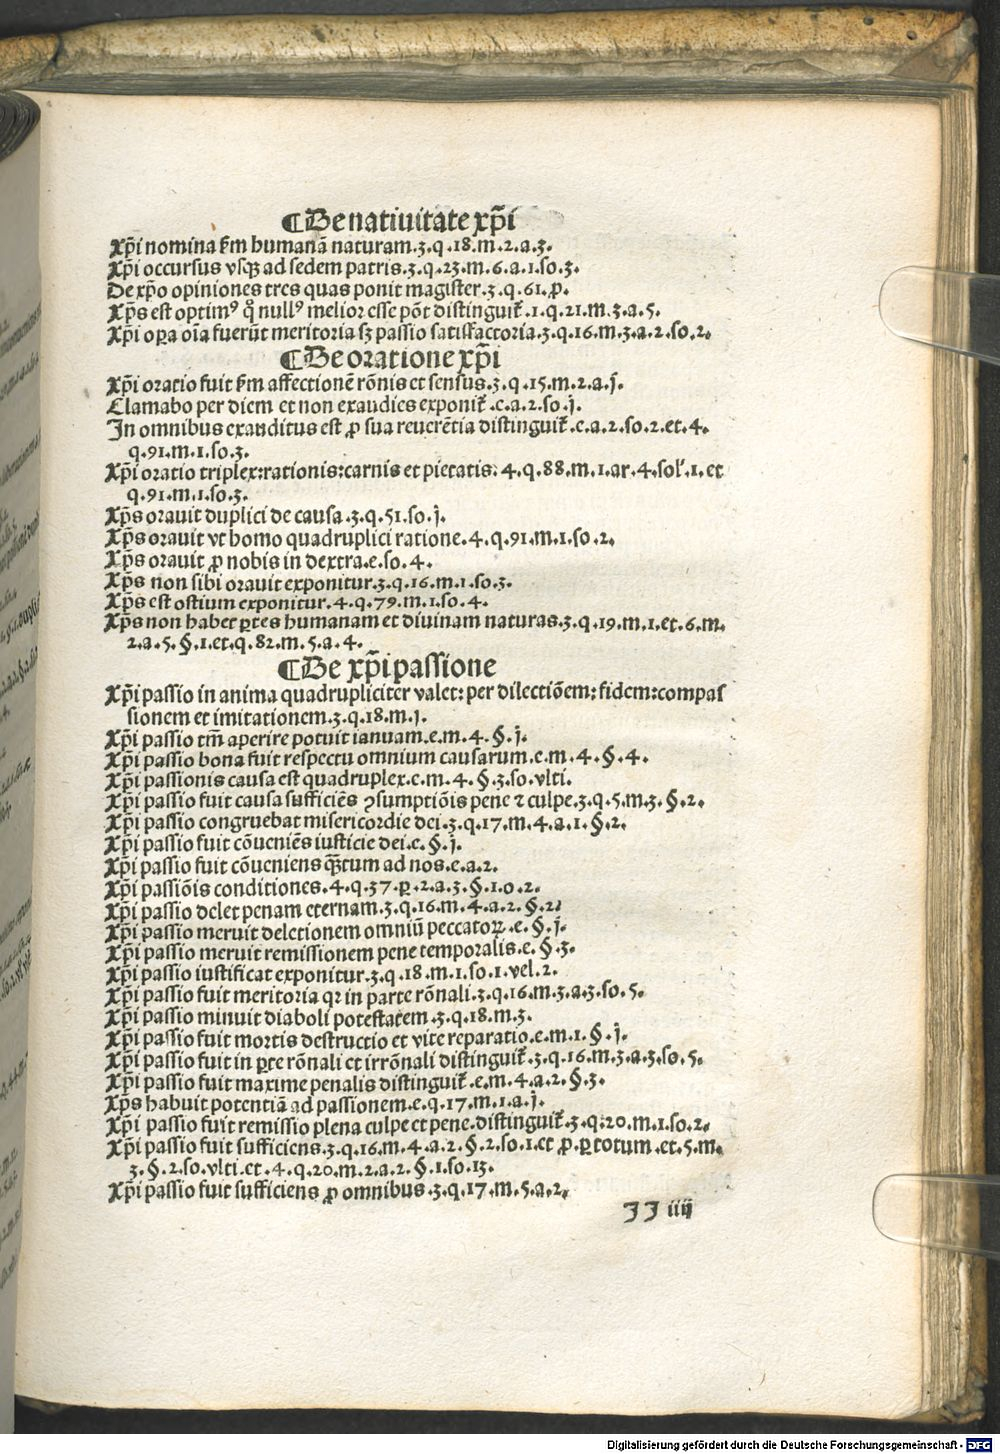 ¶De natiuitate xp̄i
Xp̄i nomina ẜm humanā naturam.3.q.18.m.2.a.3.
Xp̄i occursus vsqꝫ ad sedem patris.3.q.23.m.6.a.1.so.3.
De xp̄o opiniones tres quas ponit magister.3.q.61.p̄.
Xp̄s est optimꝰ qͦ nullꝰ melior esse pōt distinguit̄.1.q.21.m.3.a.5.
Xp̄i oꝑa oīa fuerūt meritoria sꝫ passio satisfactoria.3.q.16.m.3.a.2.so.2.
¶De oratione xp̄i
Xp̄i oratio fuit ẜm affectionē rōnis et sensus.3.q.15.m.2.a.j.
Clamabo per diem et non exaudies exponit̄.e.a.2.so.j.
In omnibus exauditus est ꝓ sua reuerētia distinguit̄.e.a.2.so.2.et.4.
q.91.m.1.so.3.
Xp̄i oratio triplex:rationis:carnis et pietatis.4.q.88.m.1.ar.4.sol'.1.et
q.91.m.1.so.3.
Xp̄s orauit duplici de causa.3.q.51.so.j.
Xp̄s orauit vt homo quadruplici ratione.4.q.91.m.1.so.2.
Xp̄s orauit ꝓ nobis in dextra.e.so.4.
Xp̄s non sibi orauit exponitur.3.q.16.m.1.so.3.
Xp̄s est ostium exponitur.4.q.79.m.1.so.4.
Xp̄s non habet ꝑtes humanam et diuinam naturas.3.q.19.m.1.et.6.m.
2.a.5.§.1.et.q.82.m.5.a.4.
¶De xp̄i passione
Xp̄i passio in anima quadrupliciter valet: per dilectiōem: fidem:compas
sionem et imitationem.3.q.18.m.j.
Xp̄i passio tm̄ aperire potuit ianuam.e.m.4.§.j.
Xp̄i passio bona fuit respectu omnium causarum.e.m.4.§.4.
Xp̄i passionis causa est quadruplex.e.m.4.§.3.so.vlti.
Xp̄i passio fuit causa sufficiēs ꝯsumptiōis pene ⁊ culpe.3.q.5.m.3.§.2.
Xp̄i passio congruebat misericordie dei.3.q.17.m.4.a.1.§.2.
Xp̄i passio fuit cōueniēs iusticie dei.e.§.j.
Xp̄i passio fuit cōueniens qꝫtum ad nos.e.a.2.
Xp̄i passiōis conditiones.4.q.37.ꝑ.2.a.3.§.1.o.2.
Xp̄i passio delet penam eternam.3.q.16.m.4.a.2.§.2.
Xp̄i passio meruit deletionem omniū peccatoꝝ.e.§.j.
Xp̄i passio meruit remissionem pene temporalis.e.§.3.
Xp̄i passio iustificat exponitur.3.q.18.m.1.so.1.vel.2.
Xp̄i passio fuit meritoria qꝛ in parte rōnali.3.q.16.m.3.a.3.so.5.
Xp̄i passio minuit diaboli potestatem.3.q.18.m.3.
Xp̄i passio fuit mortis destructio et vite reparatio.e.m.1.§.j.
Xp̄i passio fuit in ꝑte rōnali et irrōnali distinguit̄.3.q.16.m.3.a.3.so.5.
Xp̄i passio fuit maxime penalis distinguit̄.e.m.4.a.2.§.3.
Xp̄s habuit potentiā ad passionem.e.q.17.m.1.a.j.
Xp̄i passio fuit remissio plena culpe et pene.distinguit̄.3.q.20.m.1.so.2.
Xp̄i passio fuit sufficiens.3.q.16.m.4.a.2.§.2.so.1.et ꝓ.ꝑ totum.et.5.m.
3.§.2.so.vlti.et.4.q.20.m.2.a.2.§.1.so.13.
Xp̄i passio fuit sufficiens ꝓ omnibus.3.q.17.m.5.a.2.
JJ iiij
Digitalisierung gefördert durch die Deutsche Forschungsgemeinschaft - DFG